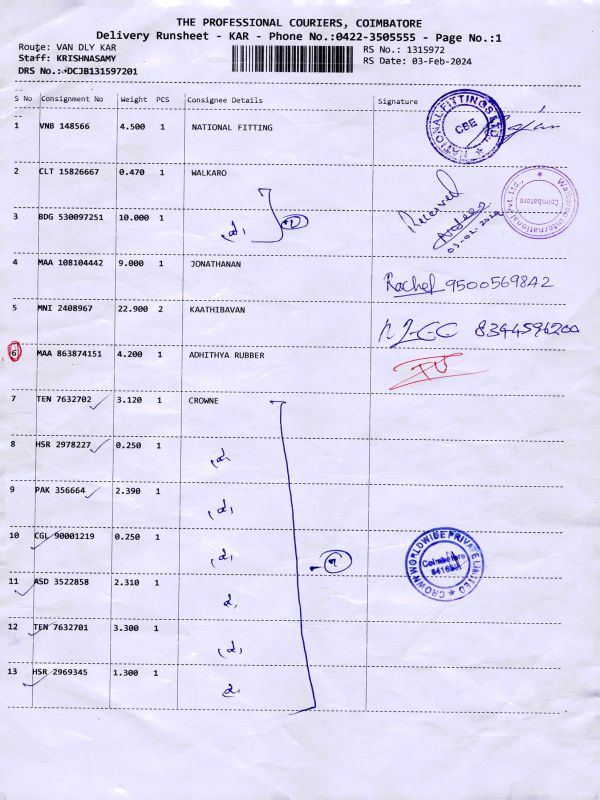 THE PROFESSIONAL COURIERS, COIMBATORE
Delivery Runsheet - KAR - Phone No.:0422-3505555 - Page No.:1
Route: VAN DLY KAR
RS No.: 1315972
Staff: KRISHNASAMY
RS Date: 03-Feb-2024
DRS No.:*DCJB131597201
S No Consignment No Weight PCS Consignee Details Signature
1 VNB 148566 4.500 1 NATIONAL FITTING
NATIONAL FITTINGS LTD. CBE
2 CLT 15826667 0.470 1 WALKARO
Received
Walkaroo International Pvt. Ltd., Coimbatore
3 BDG 530097251 10.000 1
03.02.2024
4 MAA 108104442 9.000 1 JONATHANAN
Rachel 9500569842
5 MNI 2408967 22.900 2 KAATHIBAVAN
8344596200
6 MAA 863874151 4.200 1 ADHITHYA RUBBER
7 TEN 7632702 3.120 1 CROWNE
8 HSR 2978227 0.250 1
9 PAK 356664 2.390 1
10 CGL 90001219 0.250 1
CROWN WORLDWIDE PRIVATE LIMITED Coimbatore
11 ASD 3522858 2.310 1
12 TEN 7632701 3.300 1
13 HSR 2969345 1.300 1